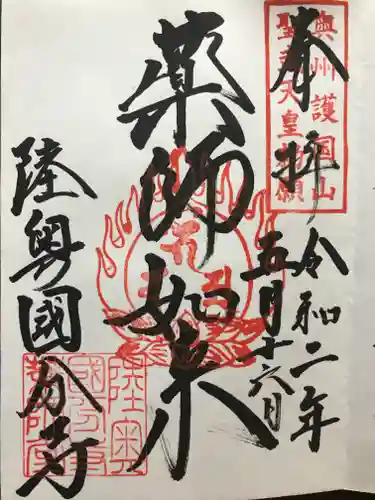 奉拝
奥州護国山
聖武天皇勅願
令和二年
五月十六日
薬師如来
陸奥國分寺